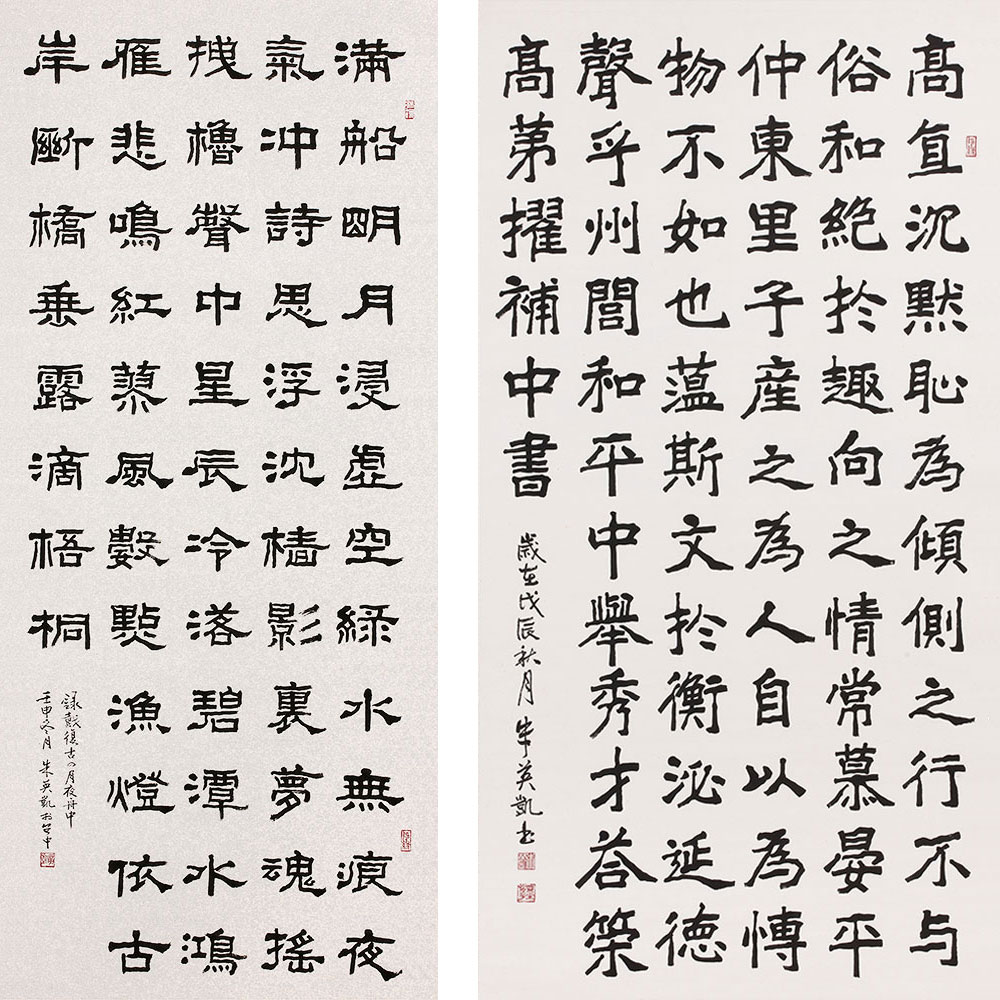 滿船明月浸虛空綠水無痕夜
氣沖詩思浮沈檣影裏夢魂搖
拽櫓聲中星辰冷落碧潭水鴻
雁悲鳴紅蓼風數點漁燈依古
岸斷橋垂露滴梧桐
錄戴復古月夜舟中
壬申冬月 朱英凱於台中
高直沉默恥為傾側之行不与
俗和絕於趣向之情常慕晏平
仲東里子產之為人自以為博
物不如也蘊斯文於衡泌延德
聲乎州閭和平中舉秀才荅策
高第擢補中書
歲在戊辰秋月 朱英凱書